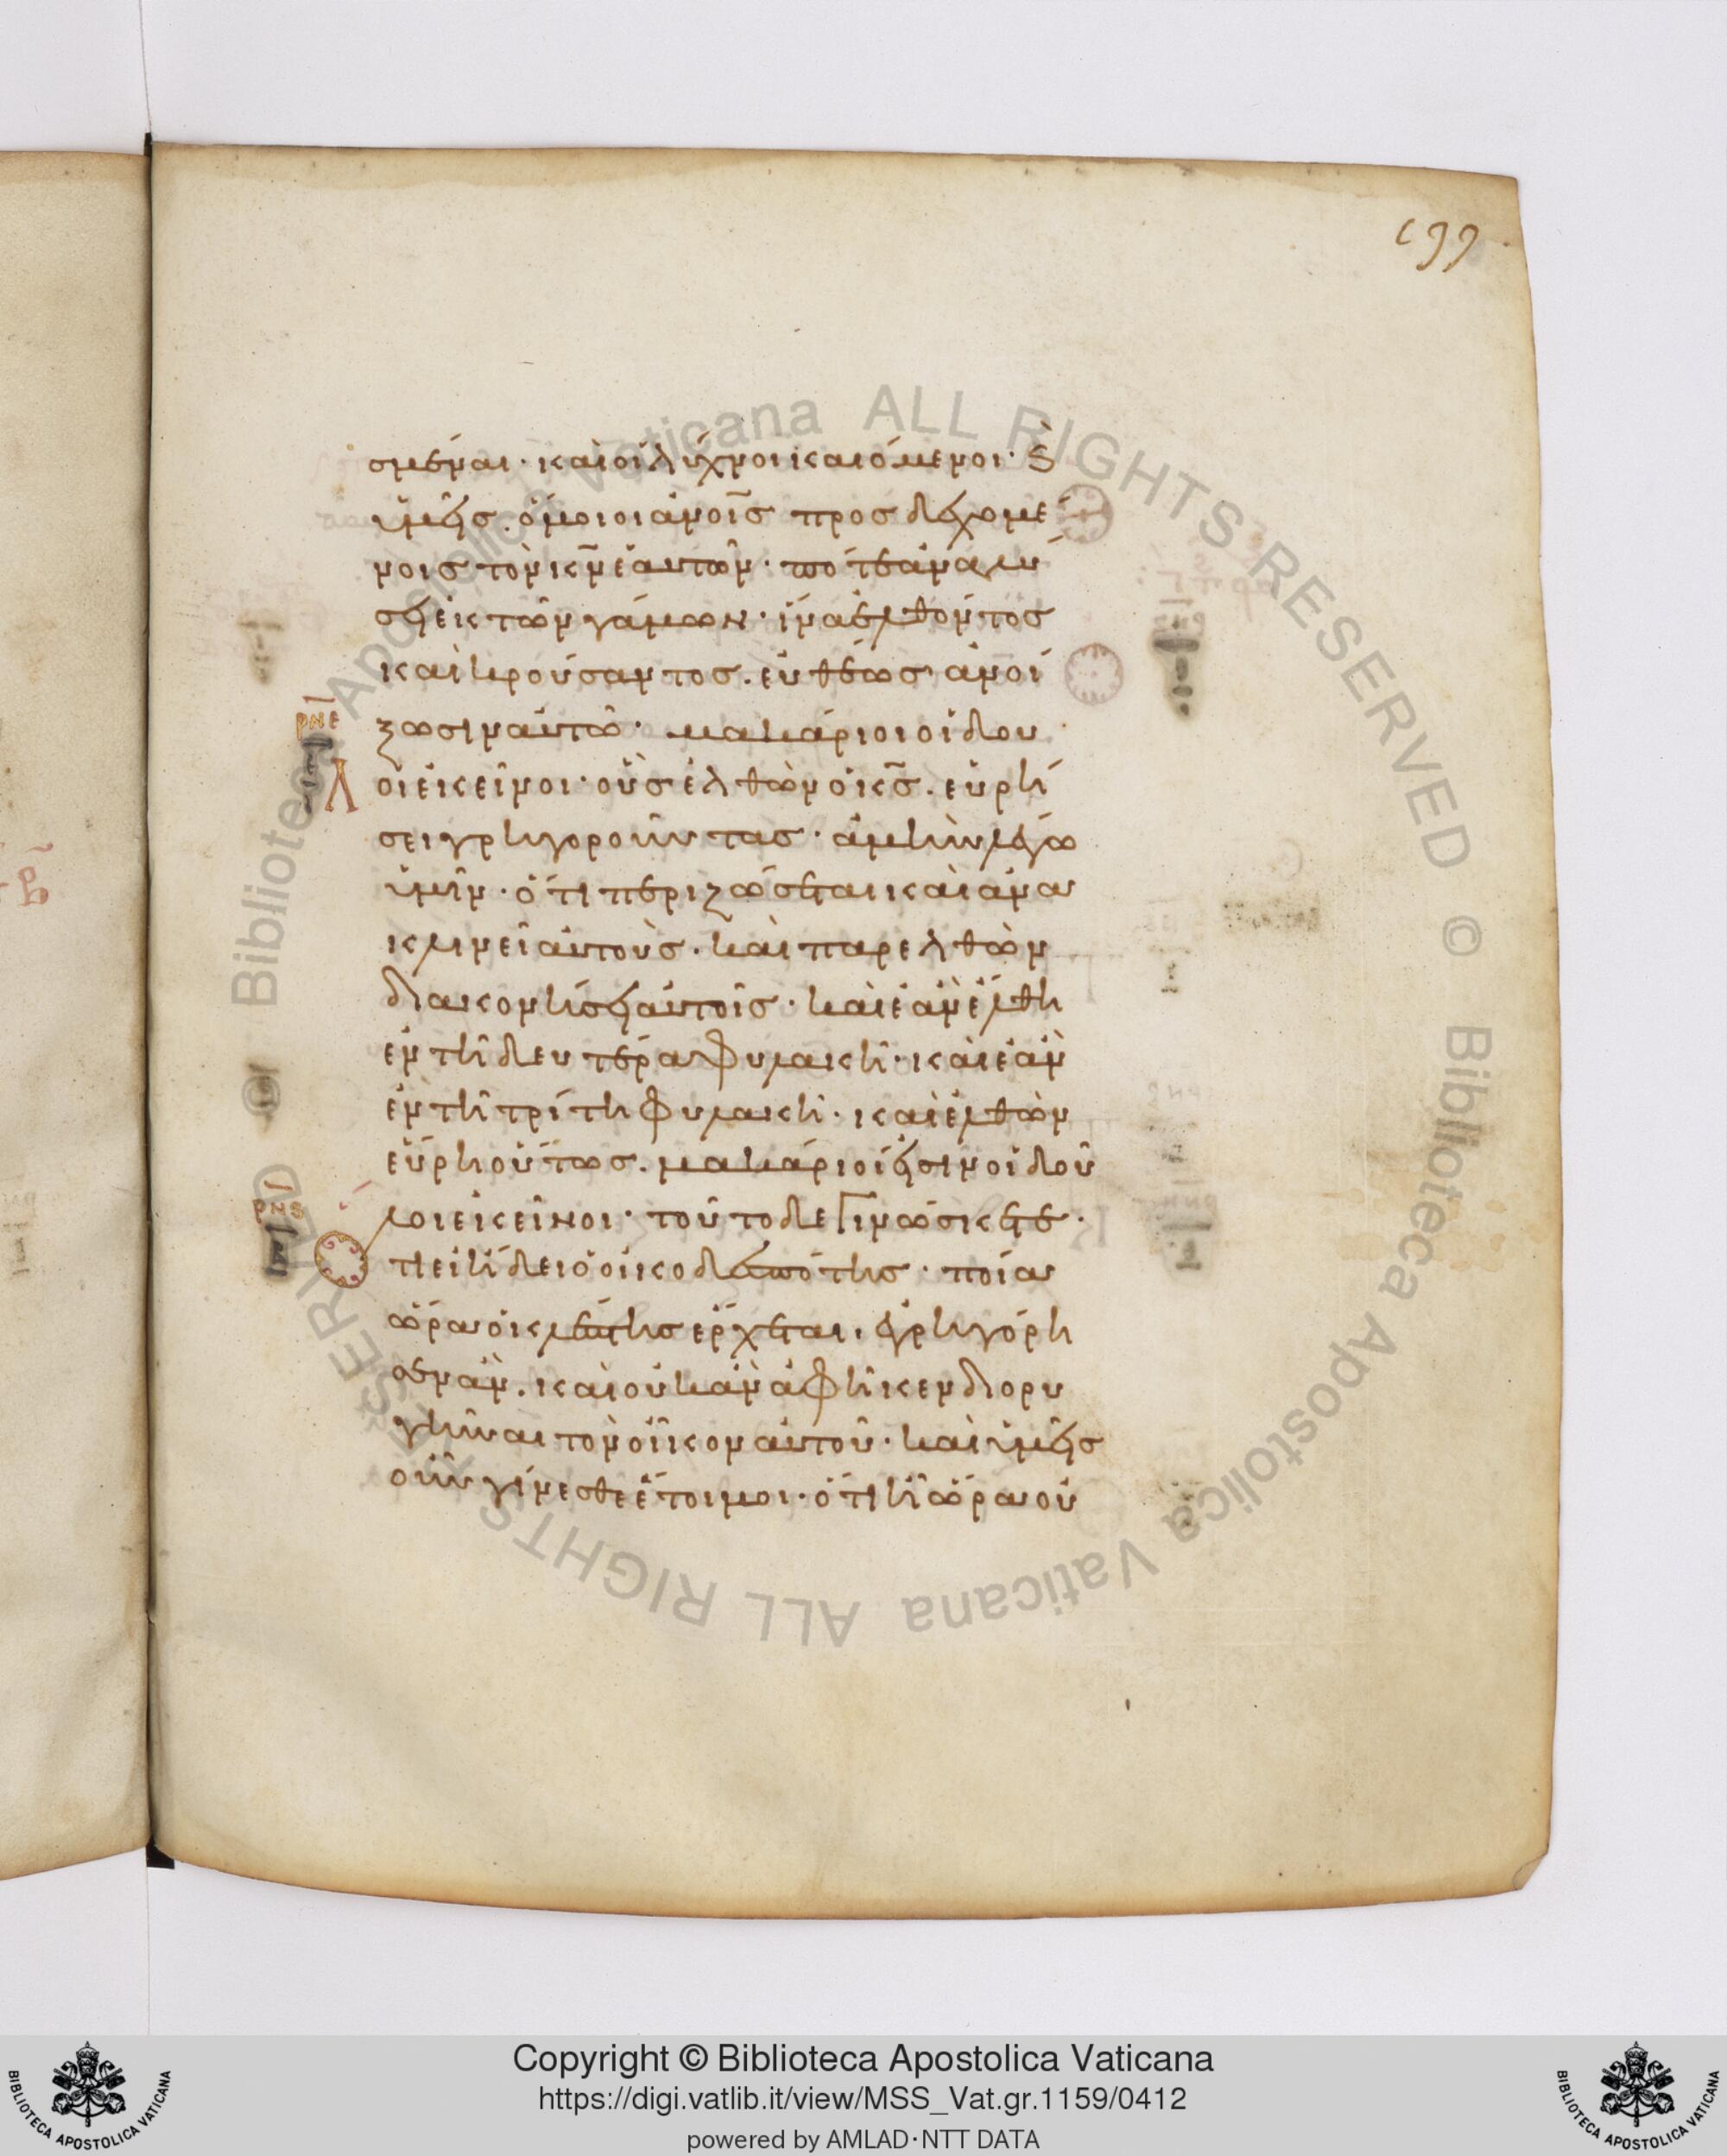 199
σμέναι· καὶ οἱ λύχνοι καιόμενοι· Ϛ̀
ὑμεῖς. ὅμοιοι ἀνοῖς προσδεχομέ
νοις τὸν κ̅ν̅ ἑαυτῶν· πότε ἀναλύ
σει ἐκ τῶν γάμων· ἵνα ἐλθόντος
καὶ κρούσαντος. εὐθέως ἀνοί
ρνε
ξωσιν αὐτῶ· μακάριοι οἱ δου
λ
οι ἐκεῖνοι· οὓς ἐλθὼν ὁ κ̅ς̅. εὑρή
σει γρηγοροῦντας· ἀμὴν λέγω
ὑμῖν· ὅτι περιζώσεται καὶ ἀνα
κλινεῖ αὐτοὺς. καὶ παρελθὼν
διακονήσει αὐτοῖς· καὶ ἐὰν ἔλθη
ἐν τῆ δευτέρα φυλακῆ· καὶ ἐὰν
ἐν τῆ τρίτη φυλακῆ· καὶ ἐλθὼν
εὕρη οὕτως. μακάριοί εἰσιν οἱ δοῦ
ρνϛ
λοι ἐκεῖνοι· τοῦτο δὲ γινώσκετε·
ὅ
τι εἰ ἤδει ὁ οἰκοδεσπότης· ποία
ὥρα ὁ κλέπτης ἔρχεται. ἐγρηγόρη
σεν ἄν. καὶ οὐκ ἂν ἀφῆκεν διορυ
γῆναι τὸν οἶκον αὐτοῦ· καὶ ὑμεῖς
οὖν γίνεσθε ἕτοιμοι· ὅτι ἧ ὥρα οὐ
ALL RIGHTS RESERVED © Biblioteca Apostolica Vaticana
ALL RIGHTS RESERVED © Biblioteca Apostolica Vaticana
Copyright © Biblioteca Apostolica Vaticana
https://digi.vatlib.it/view/MSS_Vat.gr.1159/0412
powered by AMLAD·NTT DATA
BIBLIOTECA APOSTOLICA VATICANA
BIBLIOTECA APOSTOLICA VATICANA